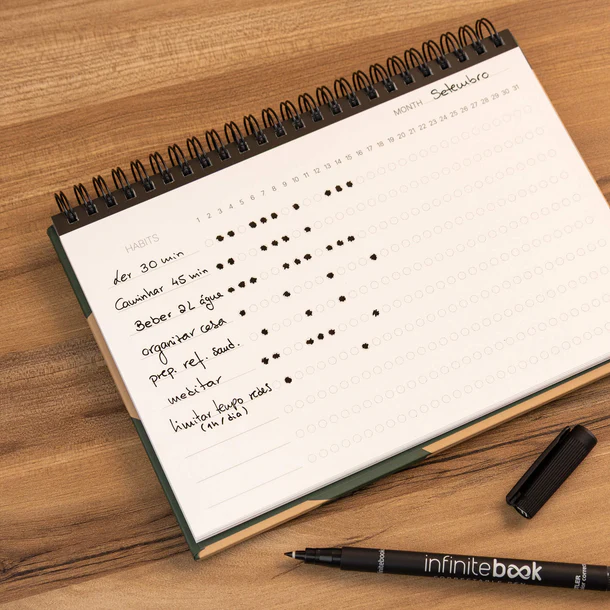 MONTH Setembro
1 2 3 4 5 6 7 8 9 10 11 12 13 14 15 16 17 18 19 20 21 22 23 24 25 26 27 28 29 30 31
HABITS
Ler 30 min
Caminhar 45 min
Beber 2L água
organizar casa
prep. ref. saud.
meditar
limitar tempo redes
(1h/dia)
infinitebook